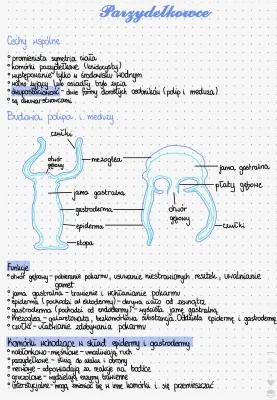 Parzydełkowce
Cechy wspólne
° promienista symetria ciała
° komórki parzydełkowe (knidocyty)
° występowanie tylko w środowisku wodnym
° wolno żyjący lub osiadły tryb życia
° dwupostaciowość - dwie formy dorosłych osobników (polip i meduza)
° są dwuwarstwowcami
Budowa polipa i meduzy
czułki
otwór gębowy
mezoglea
jama gastralna
płaty gębowe
jama gastralna
gastroderma
otwór gębowy
epiderma
czułki
stopa
Funkcje
° otwór gębowy - pobieranie pokarmu, usuwanie niestrawionych resztek, uwalnianie
gamet
° jama gastralna - trawienie i wchłanianie pokarmu
° epiderma (pochodzi od ektodermy) - okrywa ciało od zewnątrz
° gastroderma (pochodzi od endodermy) - wyściela jamę gastralną
° mezoglea - galaretowata, bezkomórkowa substancja. Oddziela epidermę i gastrodermę
° czułki - ułatwianie zdobywania pokarmu
Komórki wchodzące w skład epidermy i gastrodermy
° nabłonkowo-mięśniowe - umożliwiają ruch
° parzydełkowe - służą do ataku i obrony
° nerwowe - odpowiadają za reakcje na bodźce
° gruczołowe - wydzielają enzymy trawienne
° interstycjalne - mogą zmieniać się w inne komórki i się przemieszczać